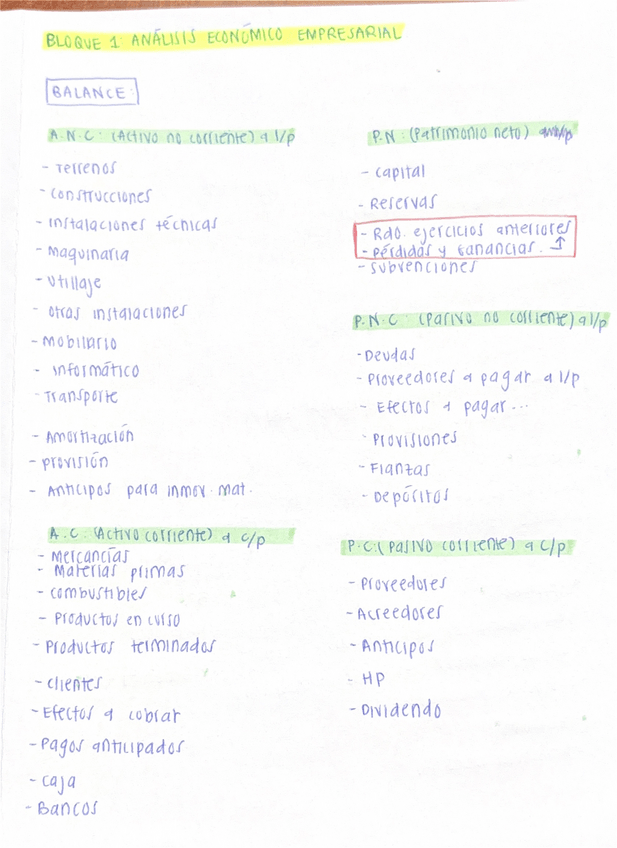 BLOQUE 1: ANÁLISIS ECONÓMICO EMPRESARIAL
BALANCE:
A.N.C: (Activo no corriente) a l/p
- Terrenos
- Construcciones
- Instalaciones técnicas
- Maquinaria
- Utillaje
- Otras instalaciones
- Mobiliario
- Informático
- Transporte
- Amortización
- Provisión
- Anticipos para inmov. mat.
A.C: (Activo corriente) a c/p
- Mercancías
- Materias primas
- Combustibles
- Productos en curso
- Productos terminados
- Clientes
- Efectos a cobrar
- Pagos anticipados
- Caja
- Bancos
P.N: (Patrimonio neto)
- Capital
- Reservas
- Rdo. ejercicios anteriores
- Pérdidas y Ganancias. ↑
- Subvenciones
P.N.C: (Pasivo no corriente) a l/p
- Deudas
- Proveedores a pagar a l/p
- Efectos a pagar...
- Provisiones
- Fianzas
- Depósitos
P.C: (Pasivo corriente) a c/p
- Proveedores
- Acreedores
- Anticipos
- HP
- Dividendo